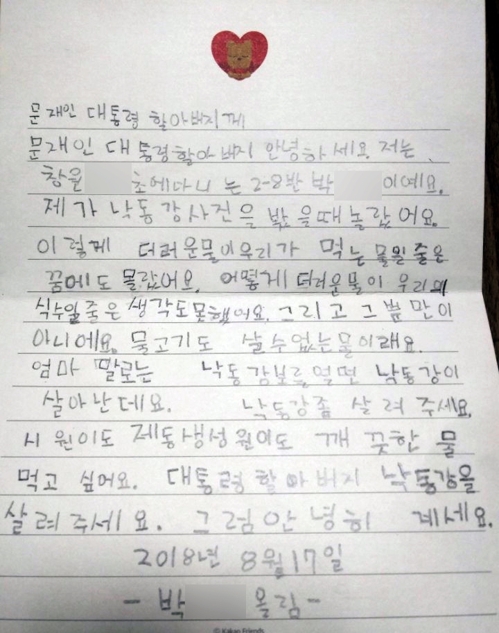 문재인 대통령 할아버지께
문재인 대통령할아버지 안녕하세요. 저는
창원 초에다니는 2-8반 박 이예요.
제가 낙동강사진을 밨을때놀랐어요.
이렇게 더러운물이우리가 먹는물일줄은
꿈에도 몰랐어요. 어떻게 더러운물이 우리의
식수일줄은 생각도못했어요. 그리고 그뿐만이
아니에요. 물고기도 살수없는물이래요.
엄마 말로는 낙동강보를열면 낙동강이
살아난데요. 낙동강좀 살려주세요.
시원이도 제동생성원이도 깨끗한 물
먹고 싶어요. 대통령할아버지 낙동강을
살려주세요. 그럼안녕히 계세요.
2018년 8월17일
- 박 올림-
© Kakao Friends